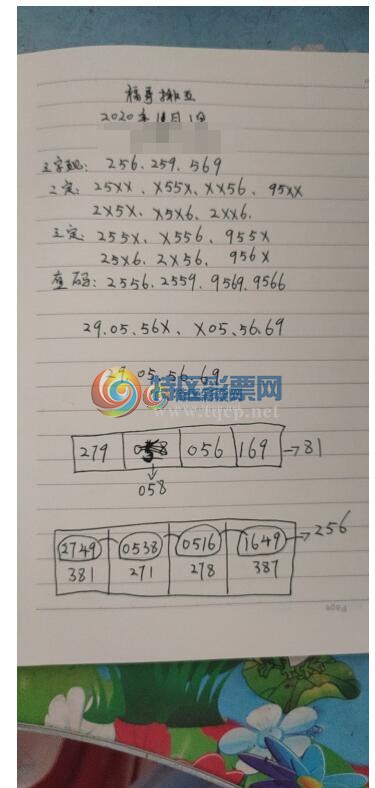 福哥排五
2020年11月1日
三字现: 256.259.569
二定: 25XX、X55X、XX56、95XX
2X5X、X5X6、2XX6.
三定: 255X、X556、955X
25X6、2X56、956X
直码: 2556.2559.9569.9566
29.05.56X、X05.56.69
29.05.56.69
特区彩票网
www.tqcp.net
279 056 169 →81
058
2749 0538 0516 1649 →256
381 271 278 387
Page